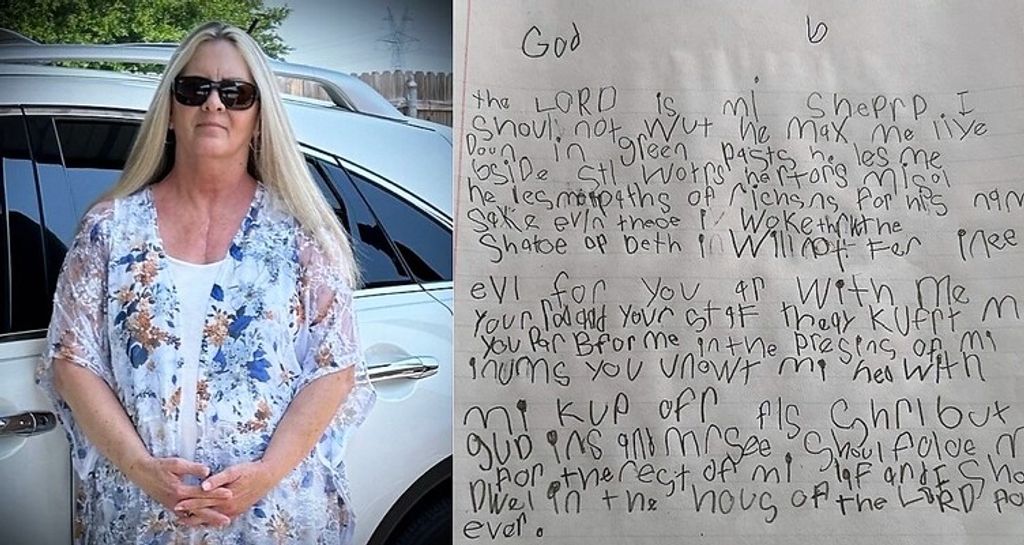 God b
the LORD is mi Sheprd I
Shoul not wut he max me liye
Doun in green pasts he les me
bside stl wotrs her tors mi sol
he les me paths of richsns for his nam
Sake evin theoe i woke thru the
Shatoe op Deth i Will not fer inee
evl for you ar with me
your rod and your staf theay Kufrt m
you Par Bfor me in the presins of mi
inums you unowt mi hed with
mi kup off fls Shrl but
gud ins and mrsee Shoul foloe m
for the rest of mi lqf and I Sho
Dwel in the hous of the LORD for
ever.